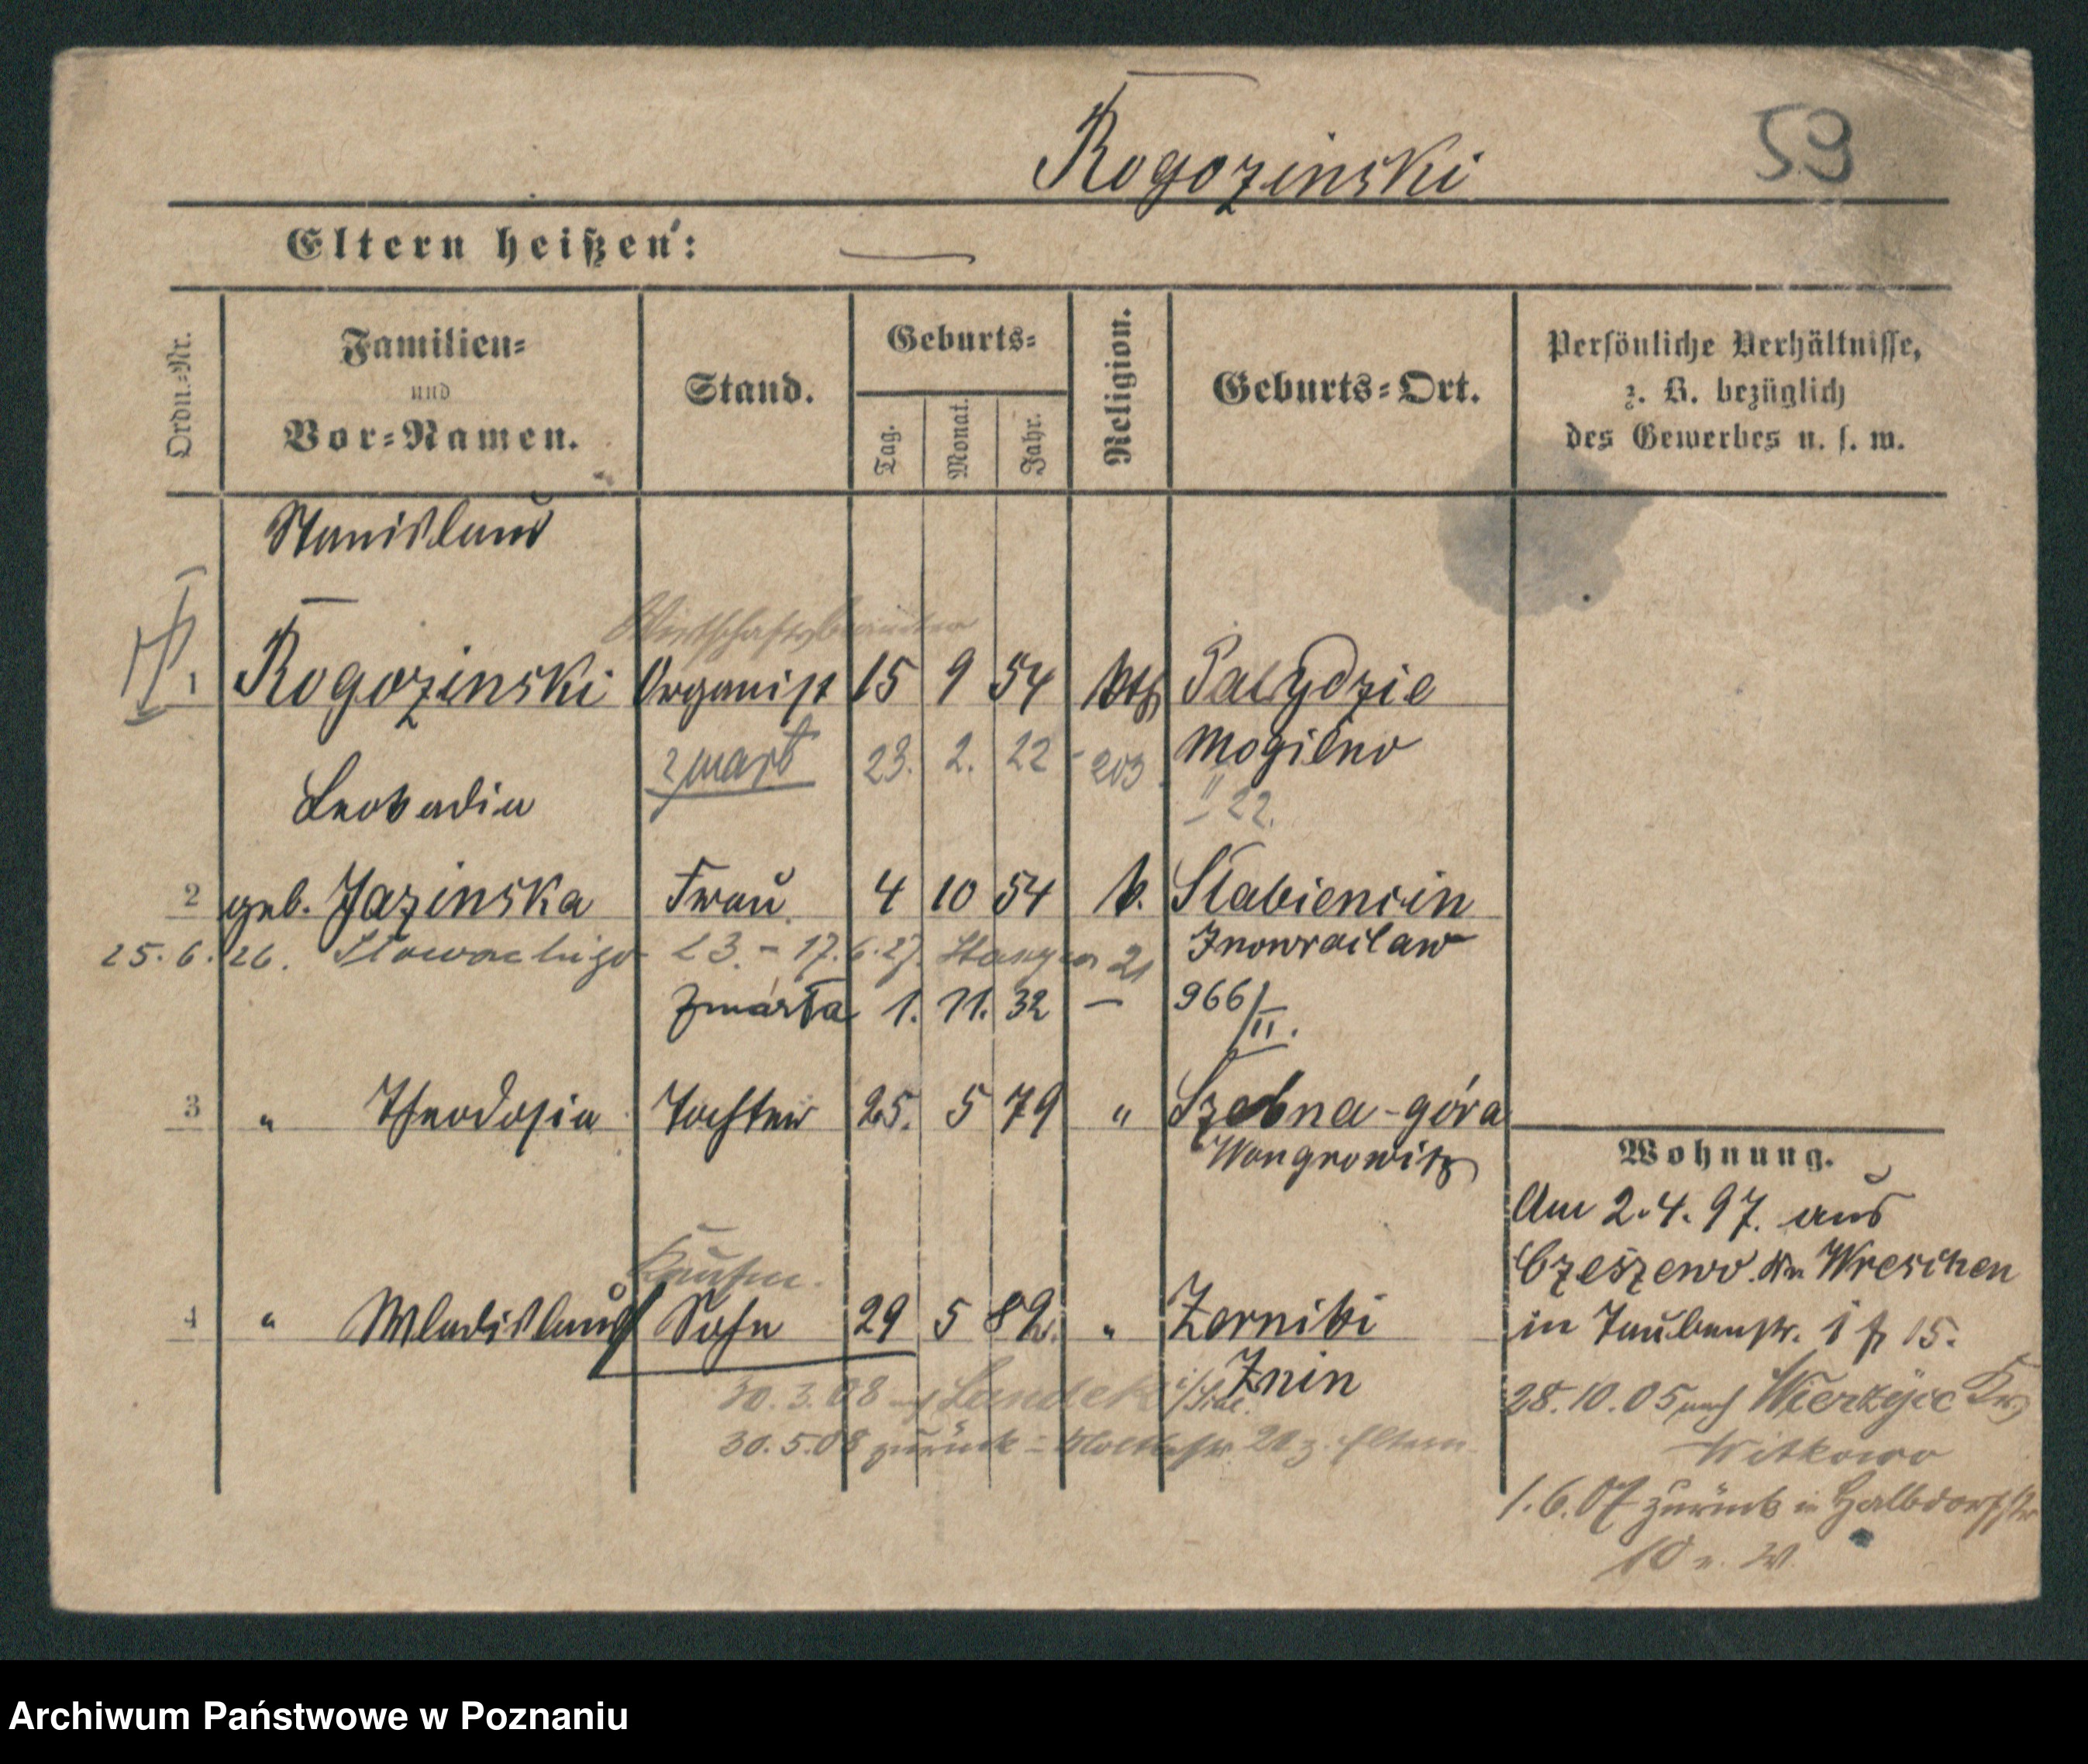 Rogozinski
59
Eltern heißen:
Ordn.-Nr.
Familien-
und
Vor-Namen.
Stand.
Geburts-
Tag.
Monat.
Jahr.
Religion.
Geburts-Ort.
Persönliche Verhältnisse,
z. B. bezüglich
des Gewerbes u. s. w.
Stanislaus
Wirtschaftsbeamter
1 Rogozinski Organist 15 9 54 kth Palydzie
zmarł 23. 2. 22 - 203 Mogilno
II 22.
Leokadia
2 geb. Jazinska Frau 4 10 54 k. Slabiencin
25.6.26. Słowackiego 23. - 17.6.27. 21 Inowraclaw
zmarła 1. 11. 32 — 966/II.
3 " Theodosia Tochter 25. 5 79 " Szebna-góra
Wongrowitz
Kaufm.
4 " Wladislaus Sohn 29 5 82. " Zerniki
Znin
30.3.08 Landek
30.5.08 zurück = 20 z. Eltern
Wohnung.
Am 2.4.97. aus
Czeszewo. Kr. Wreschen
in Taubenstr. 1 15.
28.10.05 nach Wierzyce Kr.
Witkowo
1.6.07 zurück in Halbdorfstr
10 v. W.
Archiwum Państwowe w Poznaniu